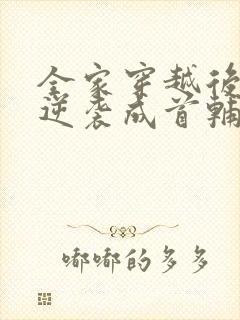 全家穿越後
逆袭成首輔
嘟嘟的多多